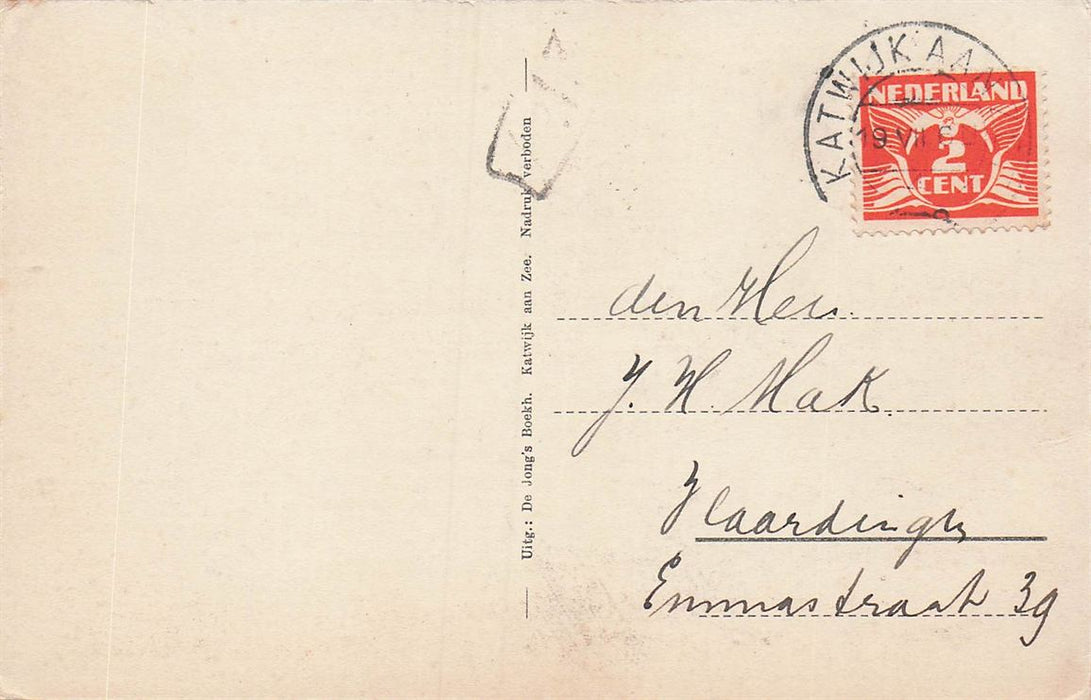 KATWIJK AAN
19 VII
NEDERLAND
2
CENT
Uitg.: De Jong's Boekh. Katwijk aan Zee. Nadruk verboden
den Heer
J. H. Mak
Vlaardingen
Emmastraat 39